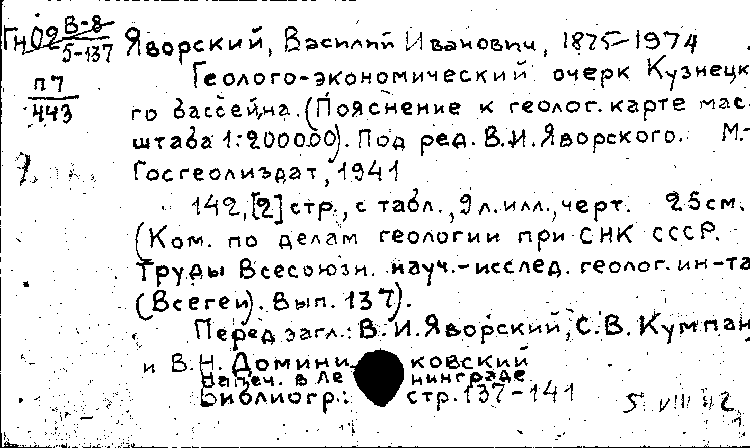 Гн02 В-8
5-137
Яворский, Василий Иванович, 1875-1974
П7
443
Геолого-экономический очерк Кузнецк
го бассейна. (Пояснение к геолог. карте мас
штаба 1:200000). Под ред. В.И. Яворского. М.-
Госгеолиздат, 1941
142, [2] стр., с табл., 9 л. илл., черт. 25 см.
(Ком. по делам геологии при СНК СССР.
Труды Всесоюзн. науч.-исслед. геолог. ин-та
(Всегеи). Вып. 137).
Перед загл.: В.И. Яворский, С.В. Кумпан
и В.Н. Доминиковский
Напеч. в Ленинграде
Библиогр.: стр. 137-141
5 VIII 42